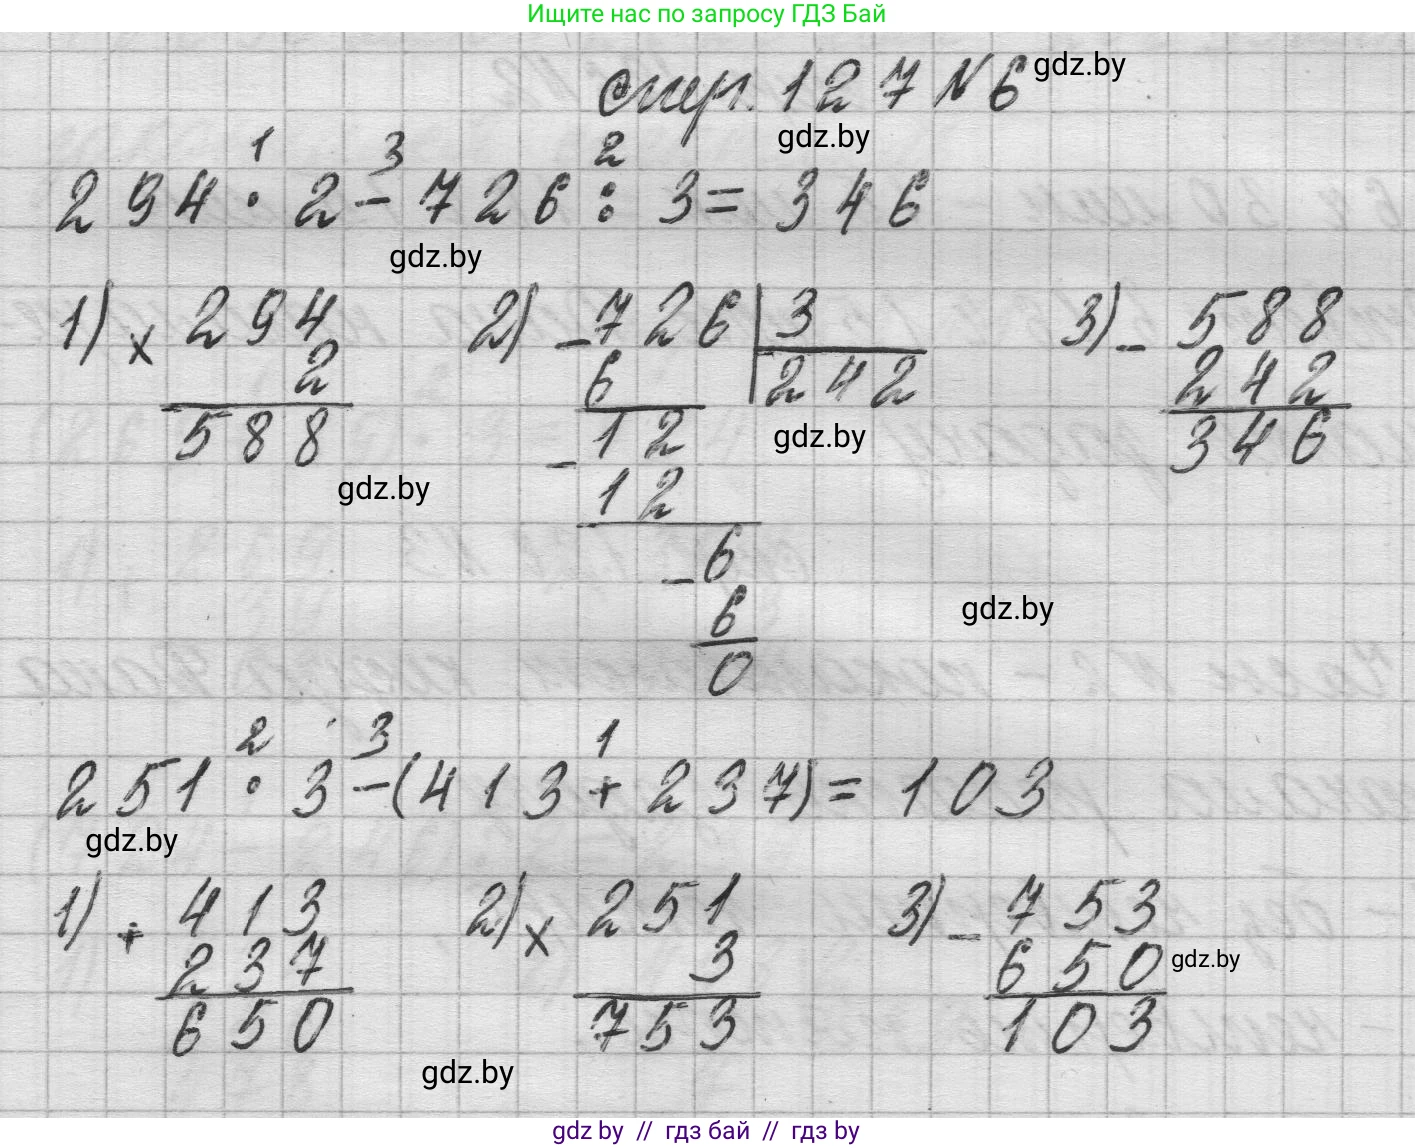 Ищите нас по запросу ГДЗ Бай
стр. 127 № 6 gdz.by
gdz.by
1 3 2
294 · 2 - 726 : 3 = 346
gdz.by
1) × 294 2) - 726 | 3 3) - 588
2 6 242 242
588 - 12 gdz.by 346
gdz.by 12
- 6
6 gdz.by
0
2 3 1
251 · 3 - (413 + 237) = 103
gdz.by
1) + 413 2) × 251 3) - 753
237 3 650 gdz.by
650 753 103
gdz.by
gdz by // гдз бай // гдз by